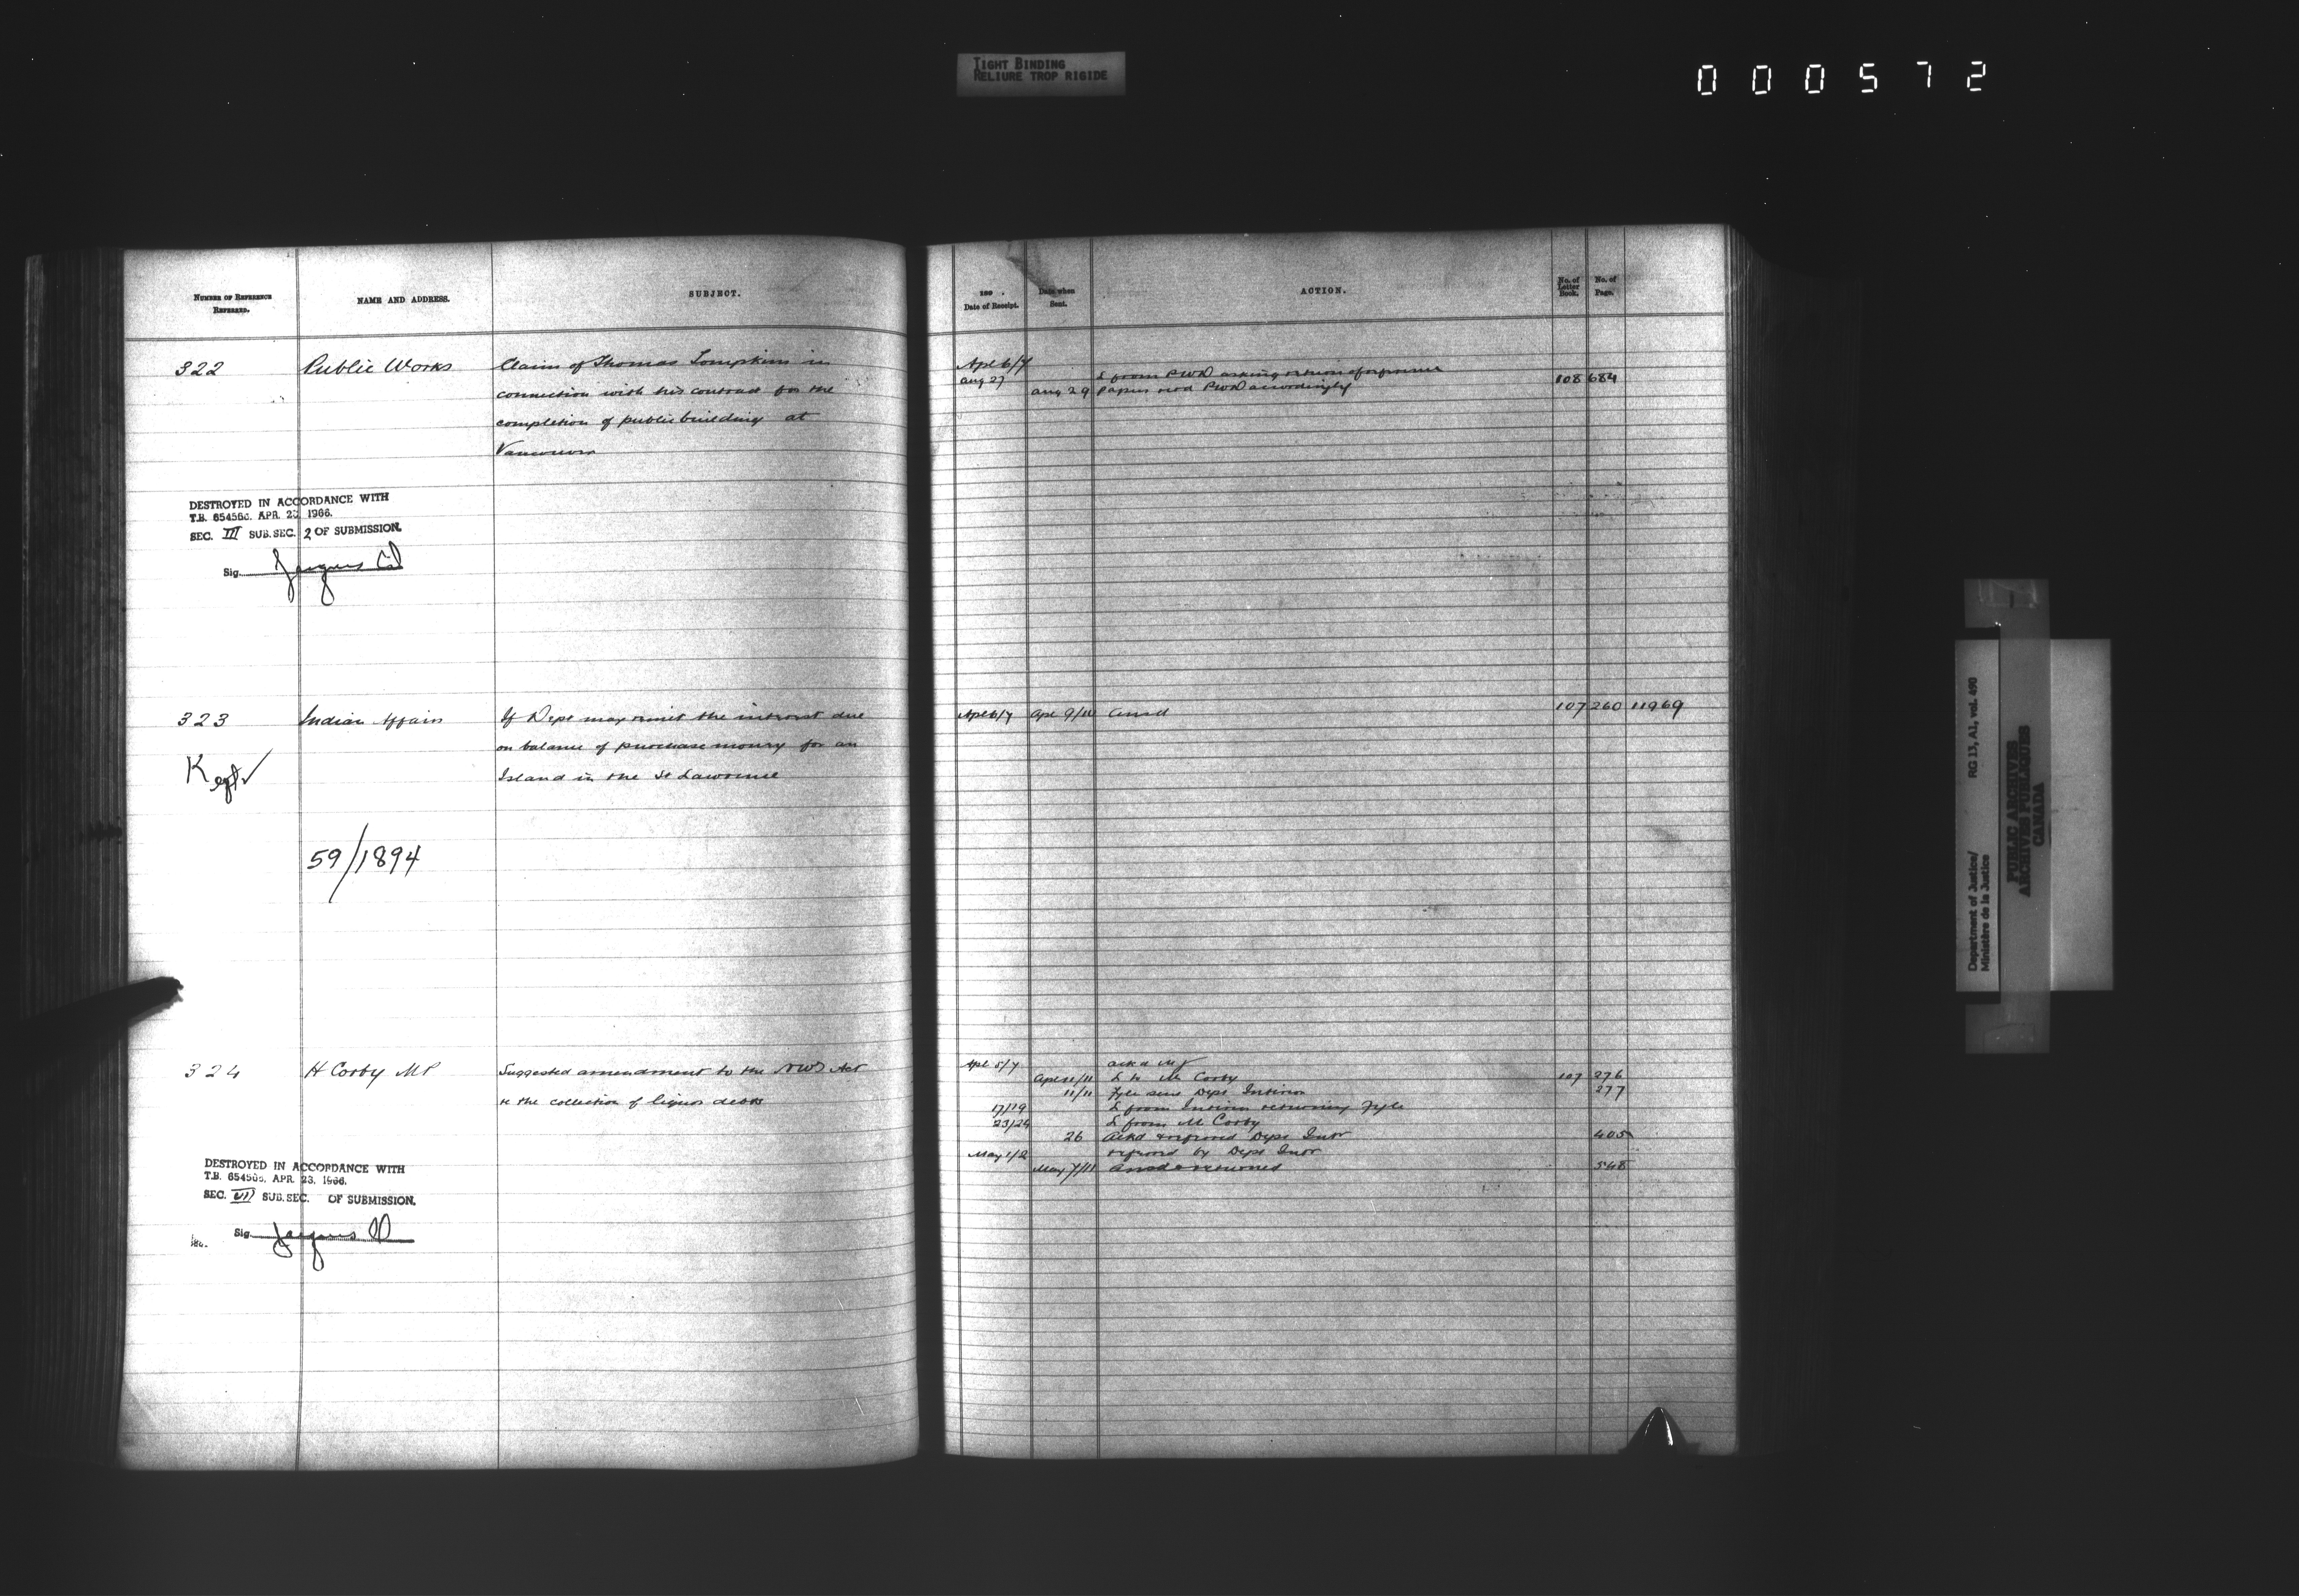 TIGHT BINDING
RELIURE TROP RIGIDE
000572
NUMBER OF REFERENCE
REFERRED.
NAME AND ADDRESS.
SUBJECT.
322 Public Works Claim of Thomas Tompkins in
connection with his contract for the
completion of public building at
Vancouver
DESTROYED IN ACCORDANCE WITH
T.B. 654560. APR. 23, 1966.
SEC. III SUB.SEC. 2 OF SUBMISSION.
Sig.
323 Indian Affairs If Dept may remit the interest due
on balance of purchase money for an
Island in the St Lawrence
Kept
59/1894
324 H Corby MP Suggested amendment to the NWT Act
re the collection of liquor debts
DESTROYED IN ACCORDANCE WITH
T.B. 654560, APR. 23, 1966.
SEC. VII SUB.SEC. OF SUBMISSION.
Sig
189 .
Date of Receipt.
Date when
Sent.
ACTION.
No. of
Letter
Book.
No. of
Page.
Apl 6/7
Aug 27 L from PWD asking return of
Aug 29 papers PWD accordingly 108 684
Apl 6/7 Apl 9/10 Ansd 107 260 11969
Apl 5/7 ackd MJ
Apl 11/11 L to Mr Corby 107 276
11/11 Fyle Dept Interior 277
17/19 L from Interior returning Fyle
23/24 L from Mr Corby
26 Ackd & referred Dept Intr 405
May 1/2 referred by Dept Intr
May 7/11 Ansd & returned 548
Department of Justice/ RG 13, A1, vol. 490
Ministère de la Justice
PUBLIC ARCHIVES
ARCHIVES PUBLIQUES
CANADA